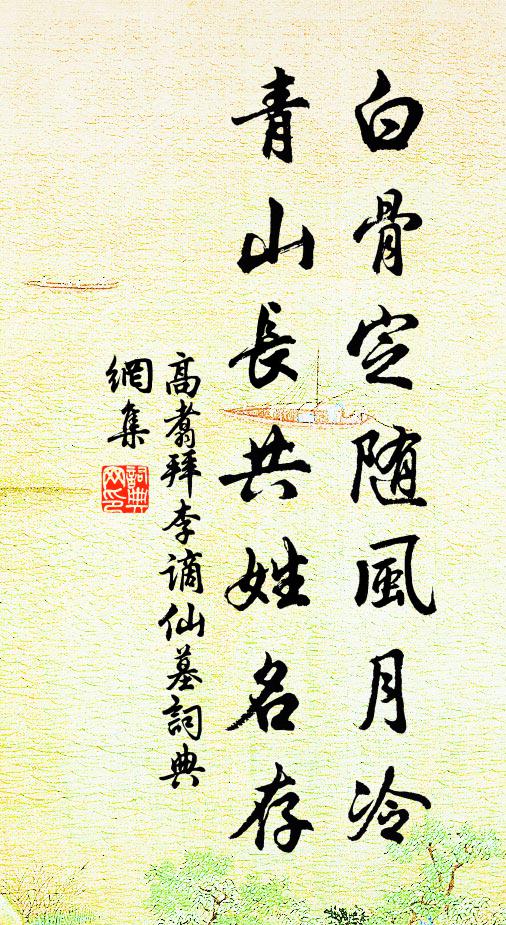 白骨定随風月冷
青山長共姓名存
高翥拜李謫仙墓詞典
網集
詞典
网印